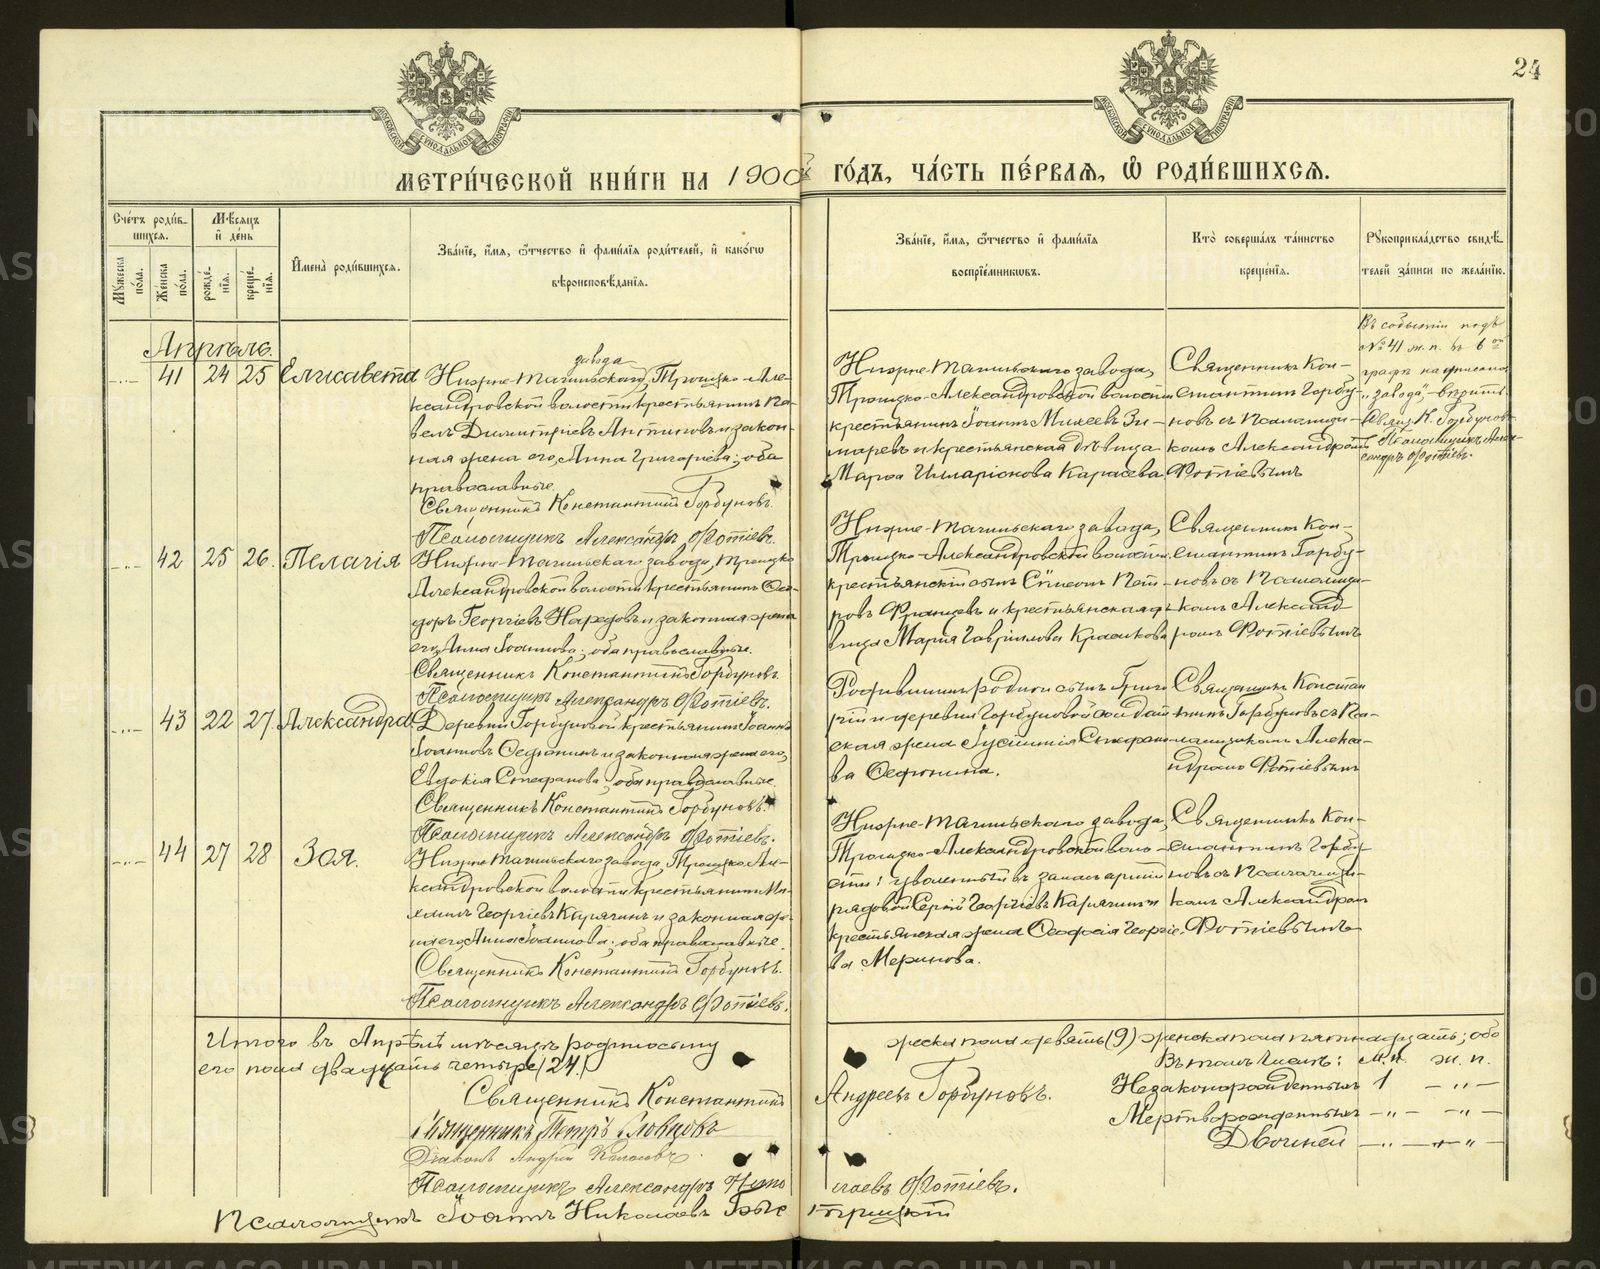 24
МЕТРИ́ЧЕСКОЙ КНИ́ГИ НА 1900й ГО́ДЪ, ЧА́СТЬ ПЕ́РВАѦ, Ѡ҆ РОДИ́ВШИХСѦ.
Сче́тъ роди́в-
шихсѧ.
Мꙋ́жеска по́ла.
Же́нска по́ла.
Мѣ́сѧцъ
и҆ де́нь
рожде́-нїѧ.
креще́-нїѧ.
И҆мена̀ роди́вшихсѧ.
Зва́нїе, и҆́мѧ, ѻ҆́тчество и҆ фами́лїѧ роди́телей, и҆ како́гѡ
вѣроисповѣ́данїѧ.
Зва́нїе, и҆́мѧ, ѻ҆́тчество и҆ фами́лїѧ
воспрїе́мникѡвъ.
Кто̀ соверша́лъ та́инство
креще́нїѧ.
Рꙋкоприкла́дство свидѣ́-
телей за́писи по жела́нїю.
Апрѣль.
41 24 25 Елисавета
завода
Нижне-Тагильскаго, Троицко-Але-
ксандровской волости крестьянинъ Па-
велъ Димитріевъ Антиповъ и закон-
ная жена его, Анна Григорьева; оба
православные.
Священникъ Константинъ Горбуновъ.
Псаломщикъ Александръ Фотіевъ.
Нижне-Тагильскаго завода,
Троицко-Александровской волости
крестьянинъ Іоаннъ Михеевъ Зи-
маревъ и крестьянская дѣвица
Марѳа Иларіонова Карасева
Священникъ Кон-
стантинъ Горбу-
новъ съ Псаломщи-
комъ Александромъ
Фотіевымъ
Въ событіи подъ
№ 41 ж. п. въ 6ой
графѣ надписано
"завода" – вѣрить.
Священ. К. Горбуновъ
Псаломщикъ Алек-
сандръ Фотіевъ.
42 25 26. Пелагія
Нижне-Тагильскаго завода, Троицко
Александровской волости крестьянинъ Ѳео-
доръ Георгіевъ и законная жена
его, Анна Іоаннова; оба православные.
Священникъ Константинъ Горбуновъ.
Псаломщикъ Александръ Фотіевъ.
Нижне-Тагильскаго завода,
Троицко-Александровской волости
крестьянскій сынъ Сѵмеонъ Пет-
ровъ и крестьянская дѣ-
вица Марія Гавріилова Красикова
Священникъ Кон-
стантинъ Горбу-
новъ съ Псаломщи-
комъ Александ-
ромъ Фотіевымъ
43 22 27 Александра
Деревни Горбуновой крестьянинъ Іоаннъ
Іоанновъ и законная жена его,
Евдокія Стефанова; оба православные.
Священникъ Константинъ Горбуновъ.
Псаломщикъ Александръ Фотіевъ.
Родившихъ родной сынъ Григо
рій и деревни Горбуновой солдат
ская жена Стефано
ва
Священникъ Констан
тинъ Горбуновъ съ Пса-
ломщикомъ Алекса-
ндромъ Фотіевымъ
44 27 28 Зоя.
Нижне-Тагильскаго завода, Троицко-Але-
ксандровской волости крестьянинъ Ми-
хаилъ Георгіевъ и законная же-
на его, Анна Іоаннова; оба православные.
Священникъ Константинъ Горбуновъ.
Псаломщикъ Александръ Фотіевъ.
Нижне-Тагильскаго завода,
Троицко-Александровской воло-
сти: уволенный въ запасъ арміи
рядовой Сергій Георгіевъ и
крестьянская жена Ѳеодосія Георгіе-
ва Меринова.
Священникъ Кон-
стантинъ Горбу-
новъ съ Псаломщи-
комъ Александромъ
Фотіевымъ
Итого въ Апрѣлѣ мѣсяцѣ родилось му
жеска пола девять (9) женска пола пятнадцать; обо
его пола двадцать четыре (24.)
Въ томъ числѣ: М. п. ж. п.
Незаконорожденныхъ 1 – „ –
Мертворожденныхъ – „ – – „ –
Двойней – „ – – „ –
Священникъ Константинъ Андреевъ Горбуновъ.
Священникъ Петръ Словцовъ
Діаконъ Андрей
Псаломщикъ Александръ Нико лаевъ Фотіевъ.
Псаломщикъ Іоаннъ Николаевъ